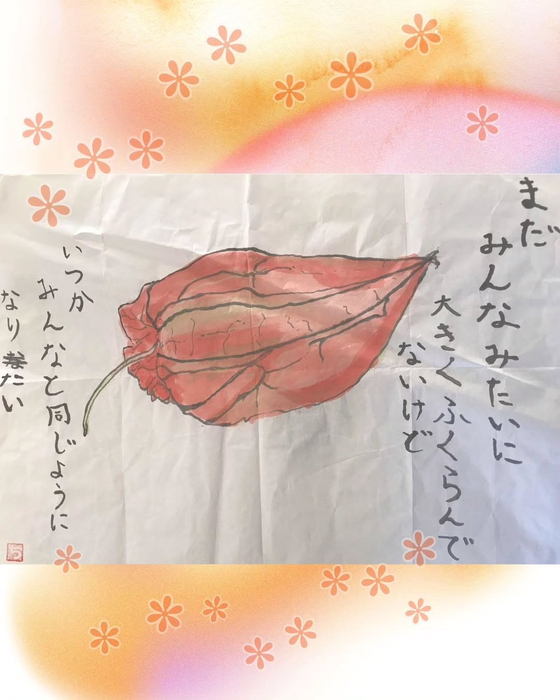 まだ
みんなみたいに
大きくふくらんで
ないけど
いつか
みんなと同じように
なりたい